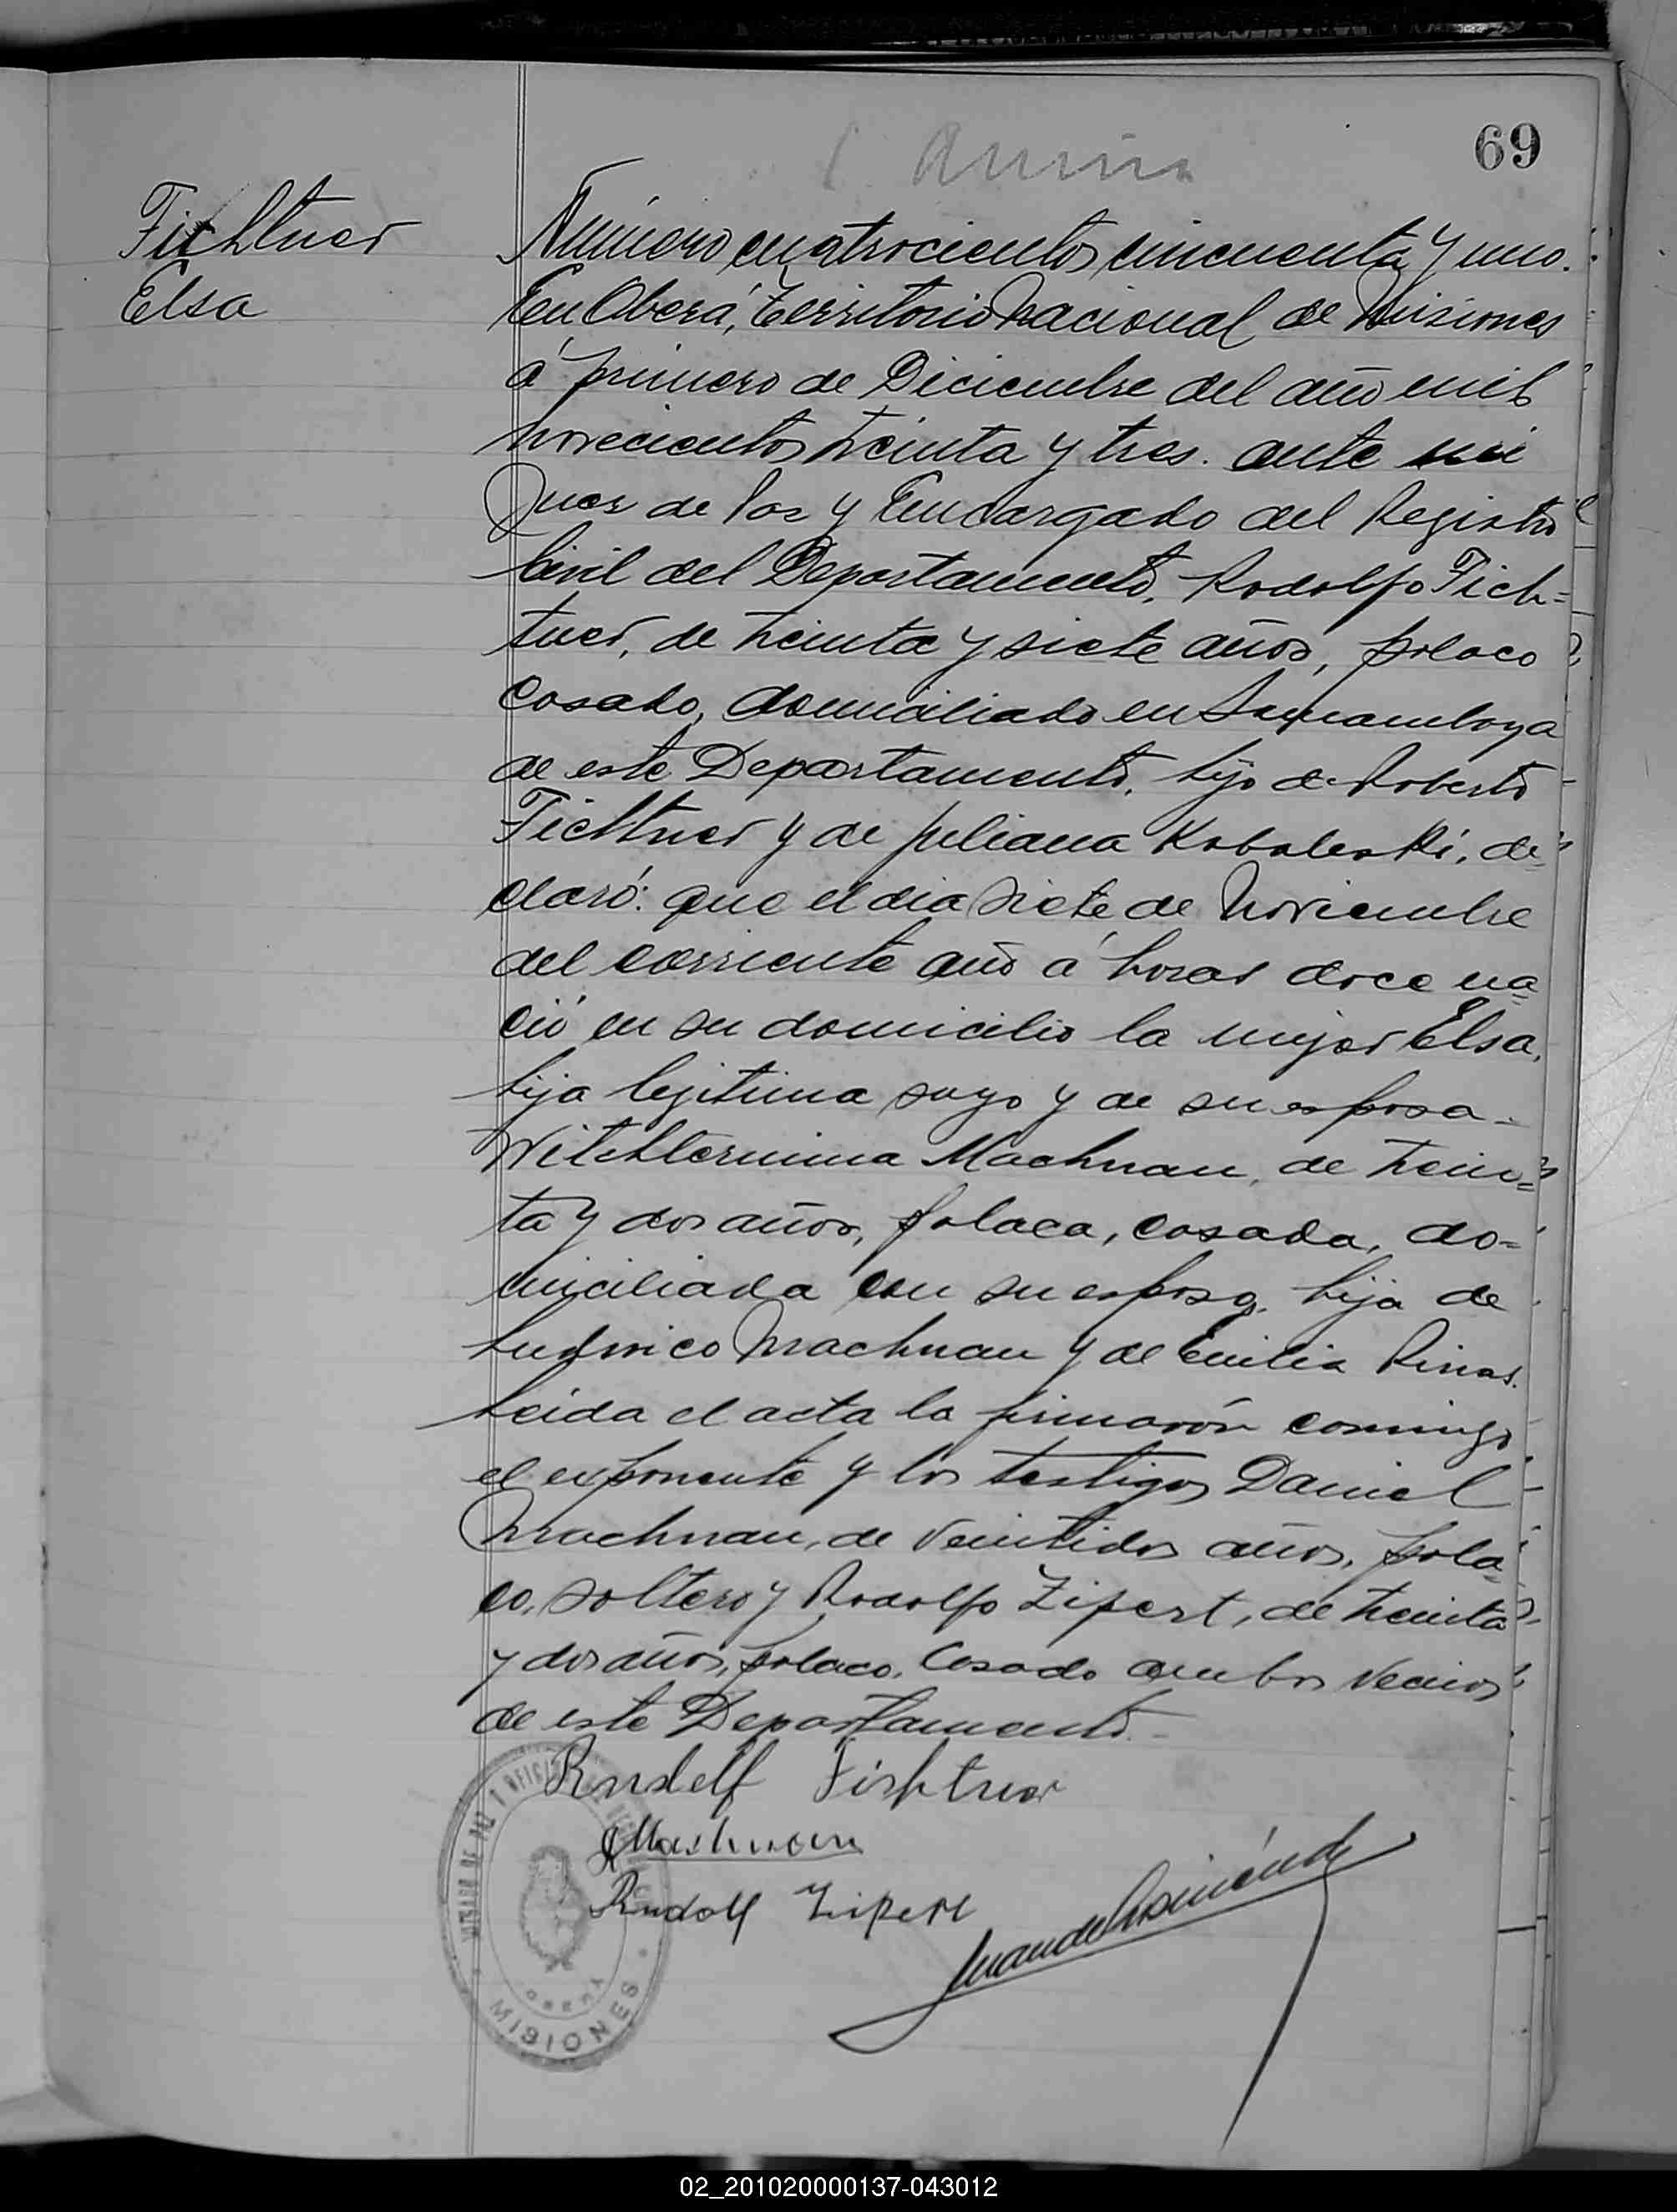 69
Fichtner
Elsa
Número cuatrocientos cincuenta y uno.
En Oberá, Territorio Nacional de Misiones
á primero de Diciembre del año mil
novecientos treinta y tres. ante mi
Juez de Paz y Encargado del Registro
Civil del Departamento, Rodolfo Fich=
tner, de treinta y siete años, polaco
casado, domiciliado en Samambaya
de este Departamento, hijo de Roberto
Fichtner y de Juliana Kobaleski, de=
claró: que el dia siete de Noviembre
del corriente año á horas doce na=
ció en su domicilio la mujer Elsa,
hija legitima suya y de su esposa
Witchlermina Machnan, de trein=
ta y dos años, polaca, casada, do=
miciliada con su esposo, hija de
Ludovico Machnan y de Emilia Rinas.
Leida el acta la firmarón conmigo
el exponente y los testigos Daniel
Machnan, de veintidos años, pola=
co, soltero y Rodolfo Zipert, de treinta
y dos años, polaco, casado ambos vecinos
de este Departamento.-
Rudolf Fichtner
Machnan
Rudolf Zipert
OBERÁ
MISIONES
02_201020000137-043012